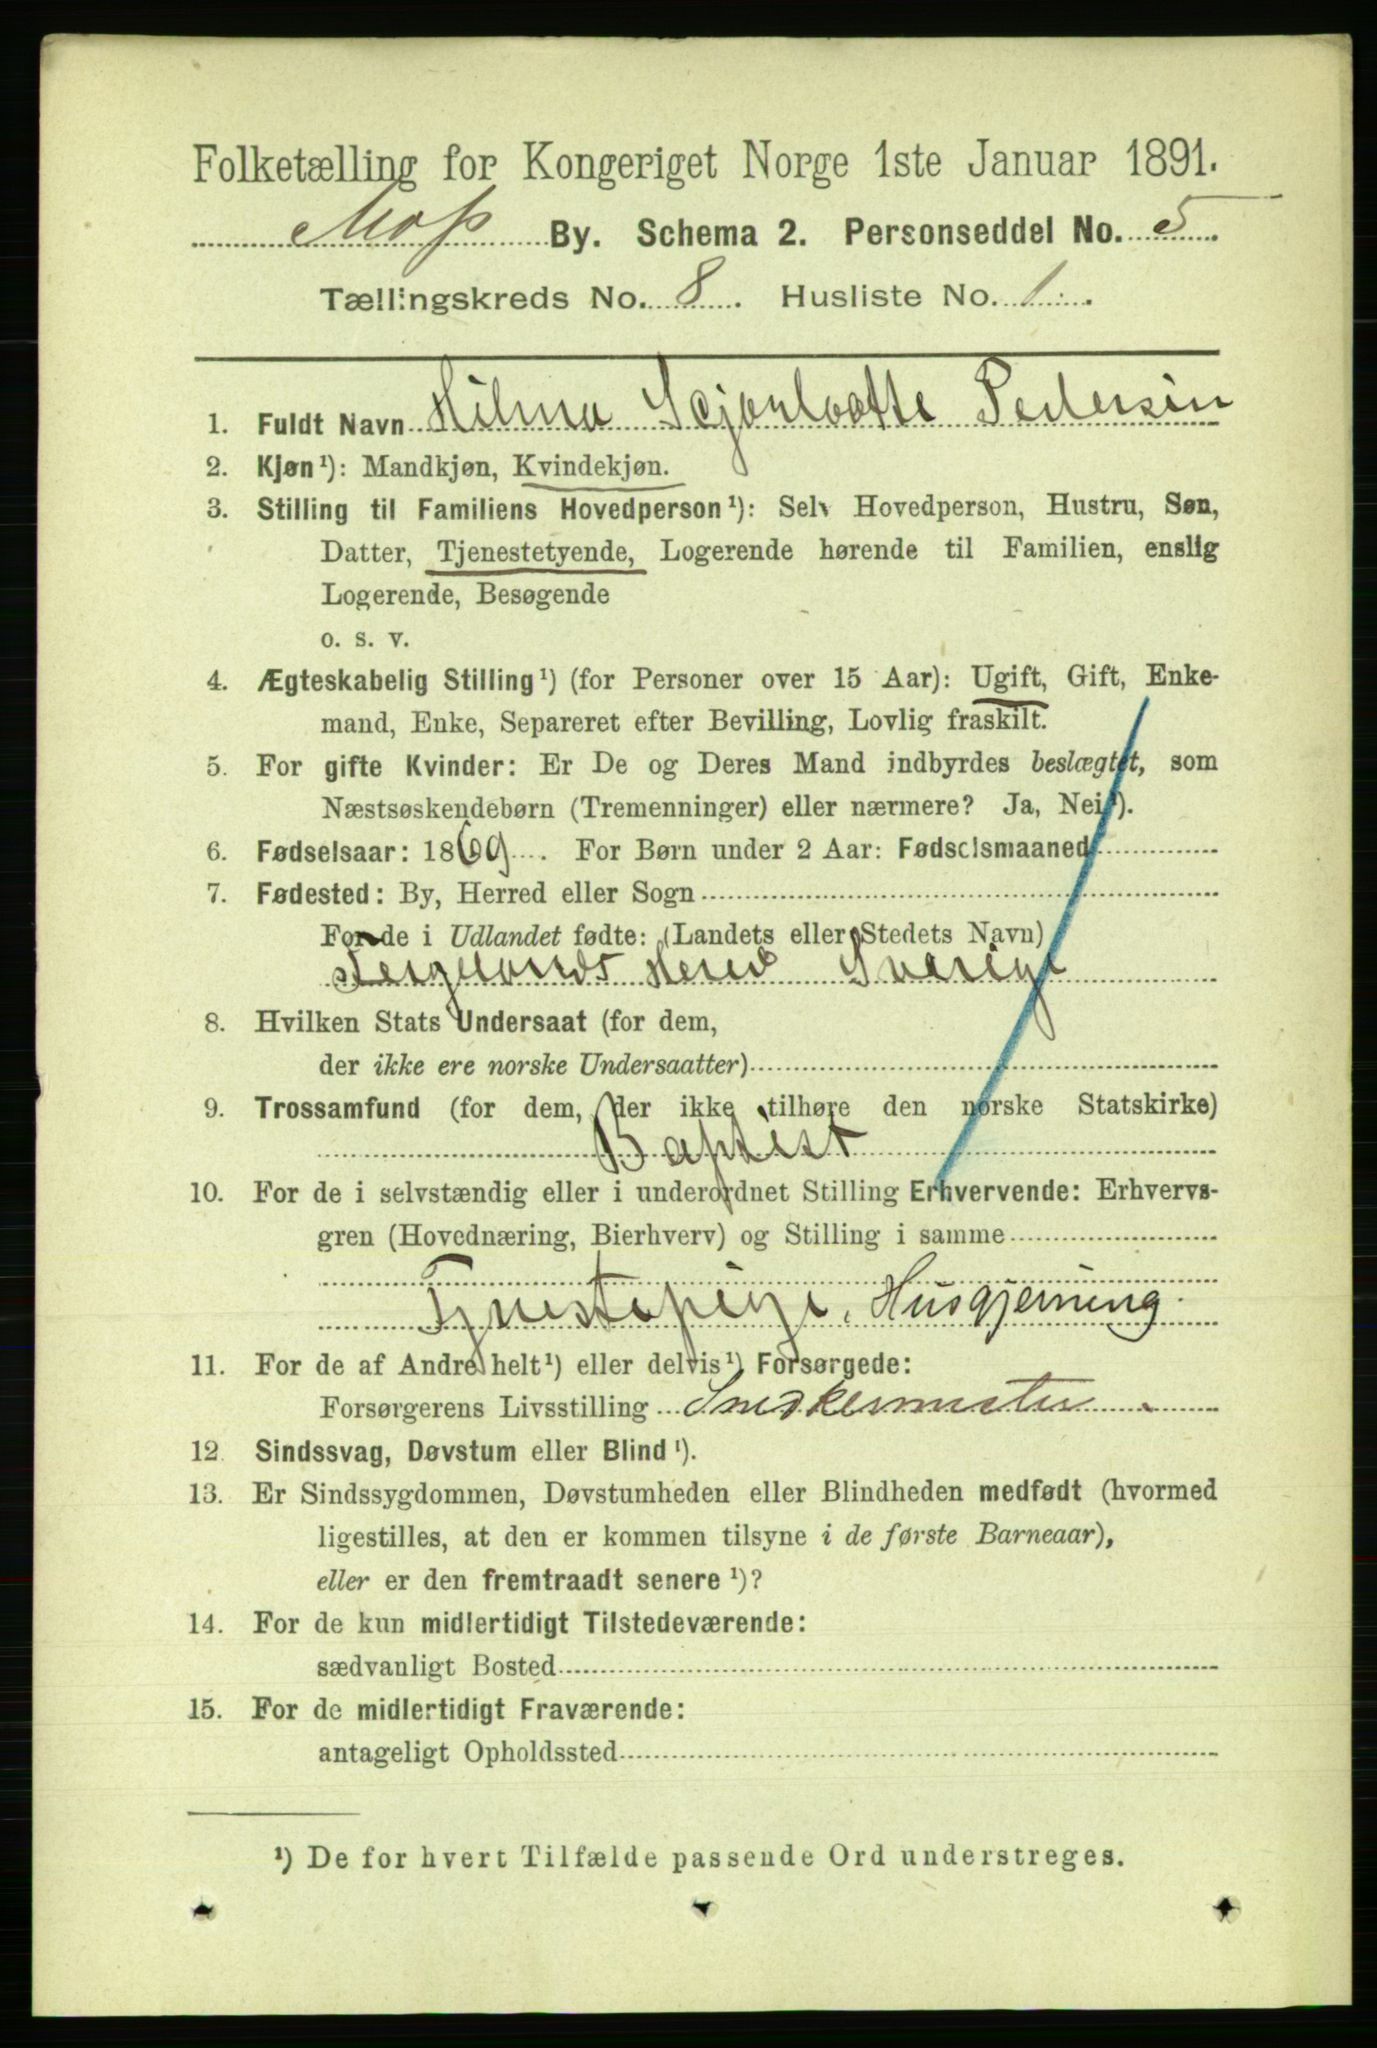 Folketælling for Kongeriget Norge 1ste Januar 1891.
Moss By. Schema 2. Personseddel No. 5.
Tællingskreds No. 8. Husliste No. 1.
1. Fuldt Navn Hilma Scjarlaatte Pedersen
2. Kjøn ¹): Mandkjøn, Kvindekjøn.
3. Stilling til Familiens Hovedperson ¹): Selv Hovedperson, Hustru, Søn,
Datter, Tjenestetyende, Logerende hørende til Familien, enslig
Logerende, Besøgende
o. s. v.
4. Ægteskabelig Stilling ¹) (for Personer over 15 Aar): Ugift, Gift, Enke-
mand, Enke, Separeret efter Bevilling, Lovlig fraskilt.
5. For gifte Kvinder: Er De og Deres Mand indbyrdes beslægtet, som
Næstsøskendebørn (Tremenninger) eller nærmere? Ja, Nei ¹).
6. Fødselsaar: 1869. For Børn under 2 Aar: Fødselsmaaned
7. Fødested: By, Herred eller Sogn
For de i Udlandet fødte: (Landets eller Stedets Navn)
Hered Sverige
8. Hvilken Stats Undersaat (for dem,
der ikke ere norske Undersaatter)
9. Trossamfund (for dem, der ikke tilhøre den norske Statskirke)
Baptist
10. For de i selvstændig eller i underordnet Stilling Erhvervende: Erhvervs-
gren (Hovednæring, Bierhverv) og Stilling i samme
Tjnestepige, Husgjerning.
11. For de af Andre helt ¹) eller delvis ¹) Forsørgede:
Forsørgerens Livsstilling Snedkermester.
12. Sindssvag, Døvstum eller Blind ¹).
13. Er Sindssygdommen, Døvstumheden eller Blindheden medfødt (hvormed
ligestilles, at den er kommen tilsyne i de første Barneaar),
eller er den fremtraadt senere ¹)?
14. For de kun midlertidigt Tilstedeværende:
sædvanligt Bosted
15. For de midlertidigt Fraværende:
antageligt Opholdssted
¹) De for hvert Tilfælde passende Ord understreges.